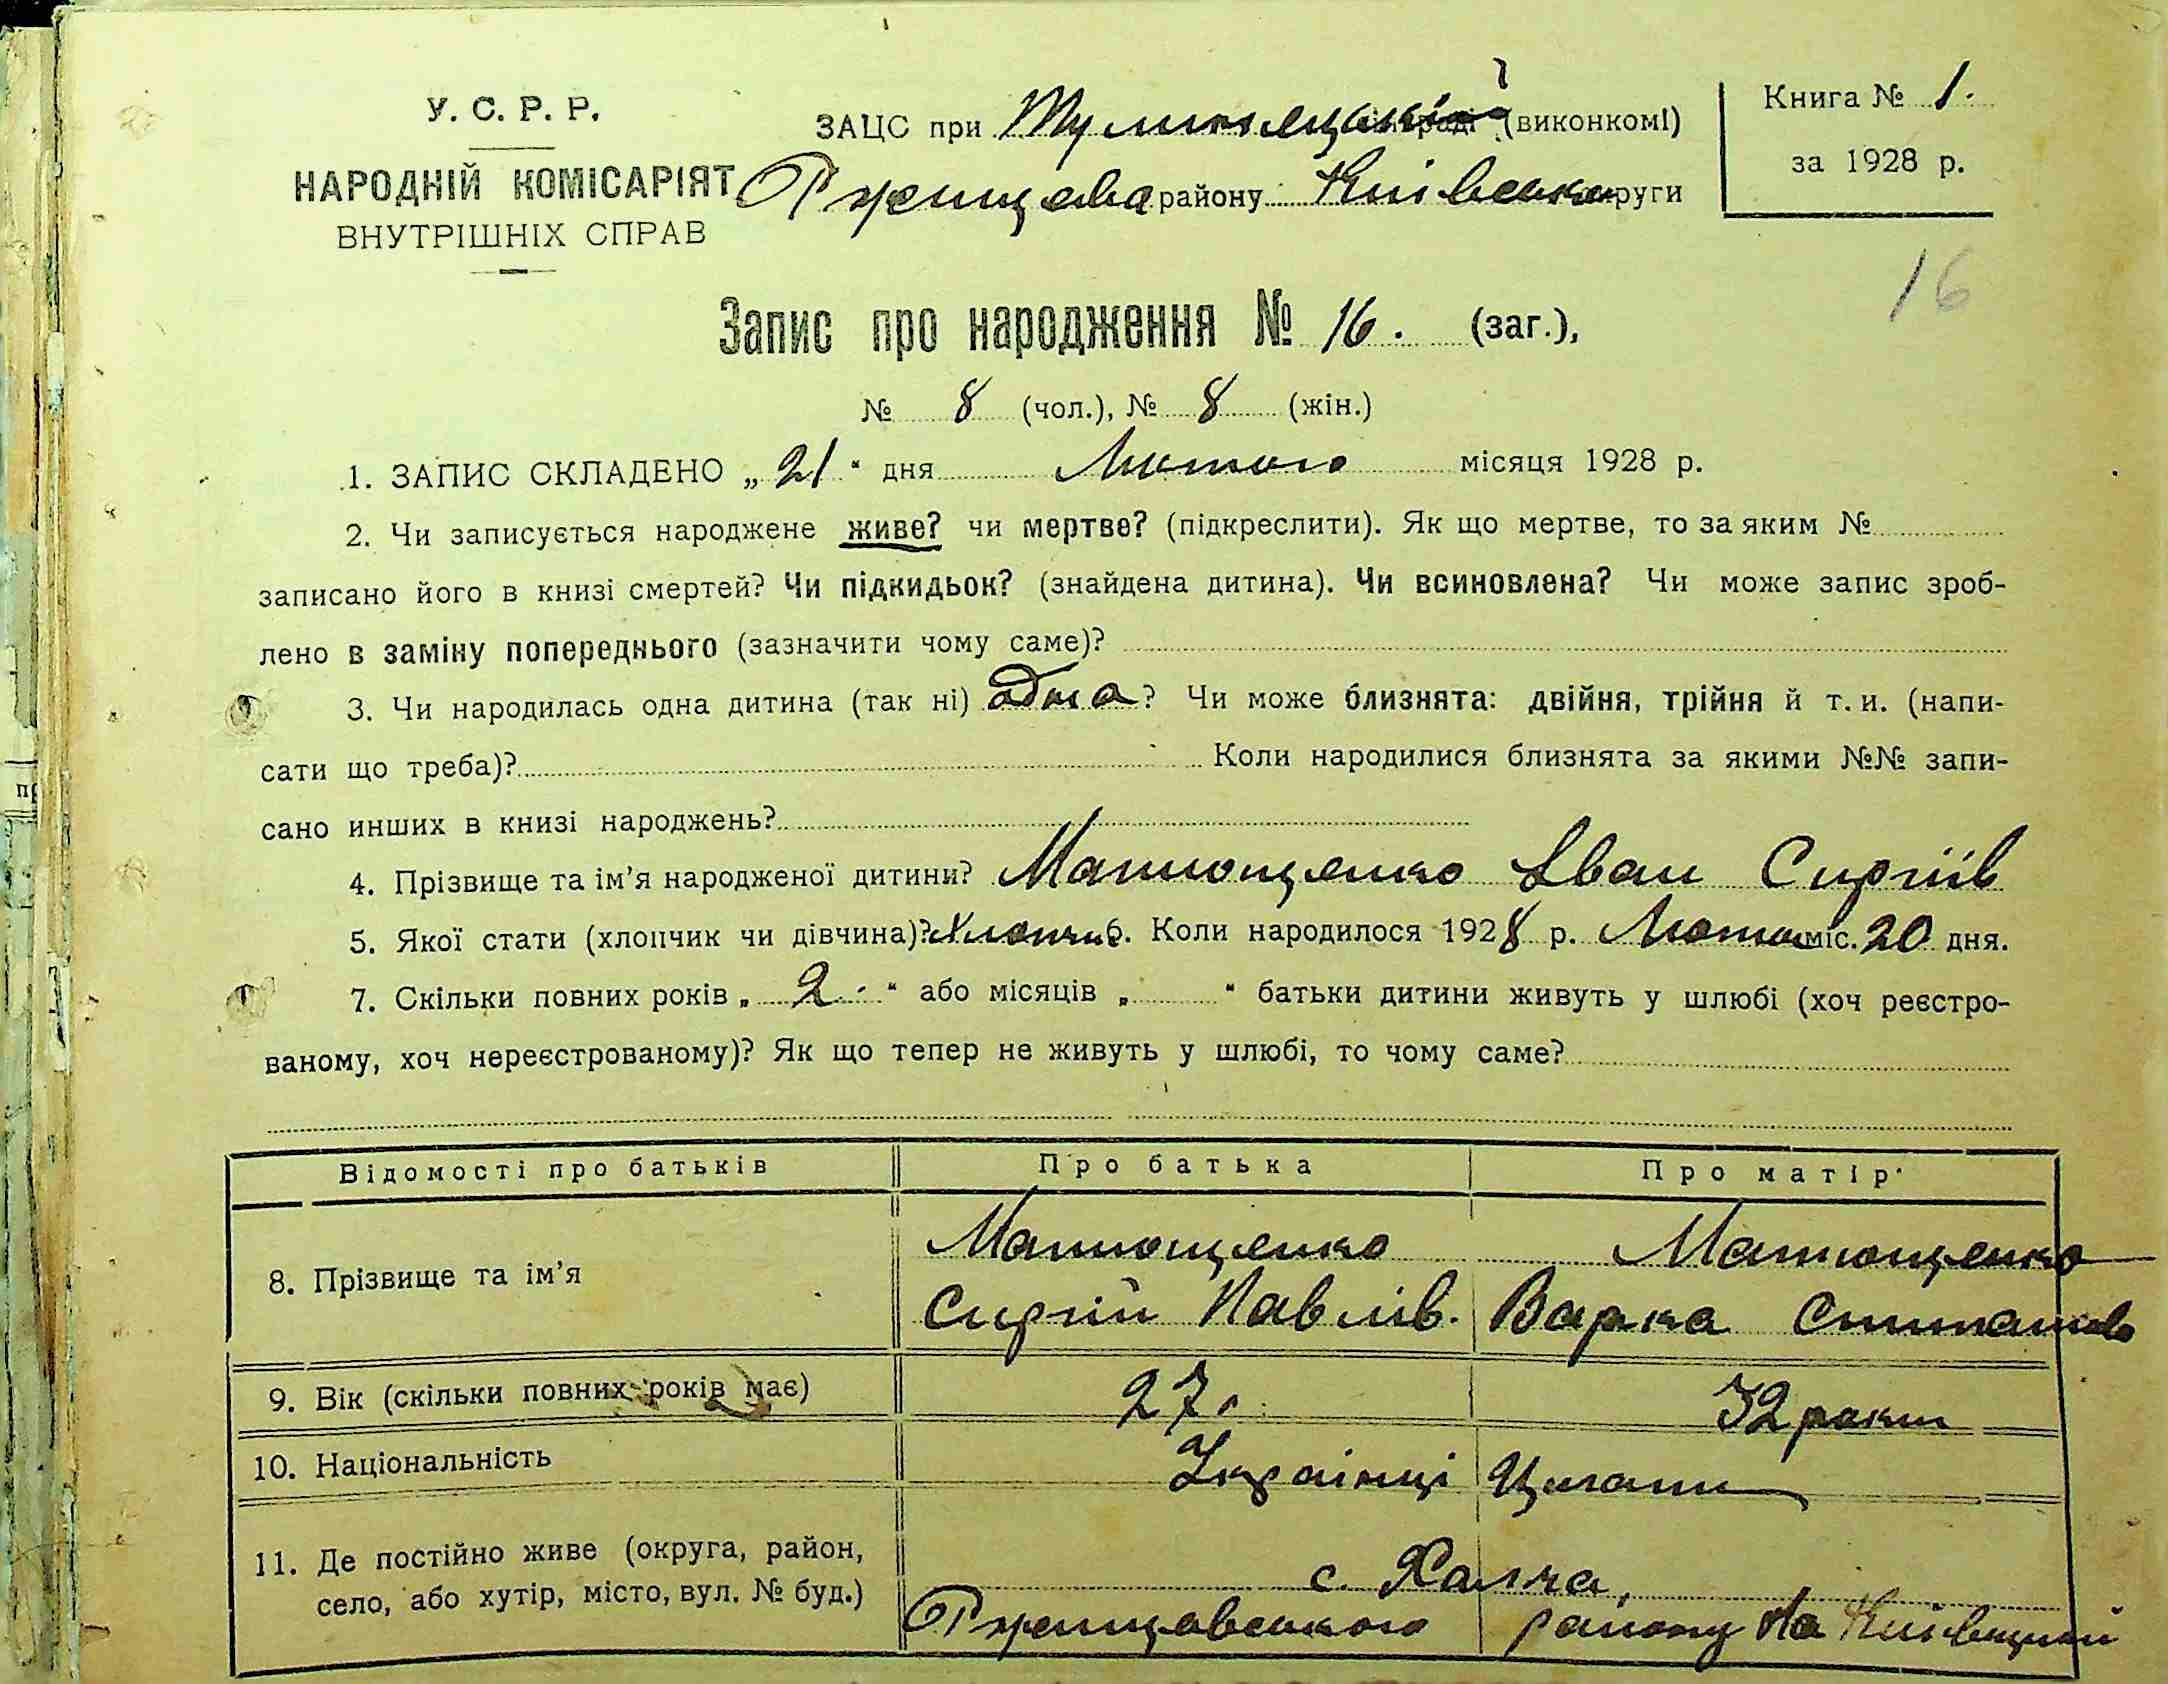 У. С. Р. Р.
НАРОДНІЙ КОМІСАРІЯТ
ВНУТРІШНІХ СПРАВ
ЗАЦС при (виконкомі)
Ржищева району Київсько округи
Книга № 1.
за 1928 р.
16
Запис про народження № 16. (заг.),
№ 8 (чол.), № 8 (жін.)
1. ЗАПИС СКЛАДЕНО „ 21 “ дня Лютого місяця 1928 р.
2. Чи записується народжене живе? чи мертве? (підкреслити). Як що мертве, то за яким №
записано його в книзі смертей? Чи підкидьок? (знайдена дитина). Чи всиновлена? Чи може запис зроб-
лено в заміну попереднього (зазначити чому саме)?
3. Чи народилась одна дитина (так ні) одна? Чи може близнята: двійня, трійня й т. и. (напи-
сати що треба)? Коли народилися близнята за якими №№ запи-
сано инших в книзі народжень?
4. Прізвище та ім’я народженої дитини? Матющенко Іван Сиргіїв
5. Якої стати (хлопчик чи дівчина)? Хлопчик 6. Коли народилося 1928 р. Лютого міс. 20 дня.
7. Скільки повних років „ 2. “ або місяців „ “ батьки дитини живуть у шлюбі (хоч реєстро-
ваному, хоч нереєстрованому)? Як що тепер не живуть у шлюбі, то чому саме?
Відомості про батьків Про батька Про матір
8. Прізвище та ім’я
Матющенко Матющенко
Сиргій Павлів. Варка
9. Вік (скільки повних років має) 27. 32 роки
10. Національність Українці Цигани
11. Де постійно живе (округа, район,
село, або хутір, місто, вул. № буд.)
с. Халча,
Ржищевського району на Київщині